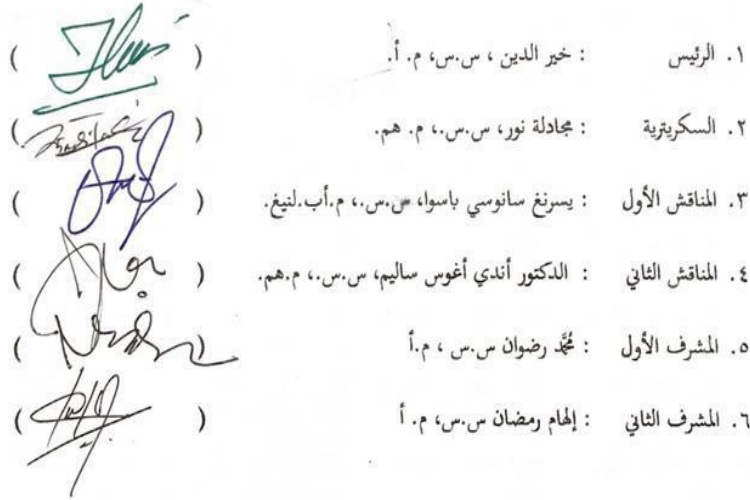 ١. الرئيس : خير الدين ، س.س، م. أ. ( )
٢. السكريترية : مجادلة نور، س.س.، م. هم. ( )
٣. المناقش الأول : يسرنغ سانوسي باسوا، س.س.، م.أب.لنيغ. ( )
٤. المناقش الثاني : الدكتور أندي أغوس ساليم، س.س.، م.هم. ( )
٥. المشرف الأول : مُحَمَّد رضوان س.س ، م.أ ( )
٦. المشرف الثاني : إلهام رمضان س.س، م. أ ( )